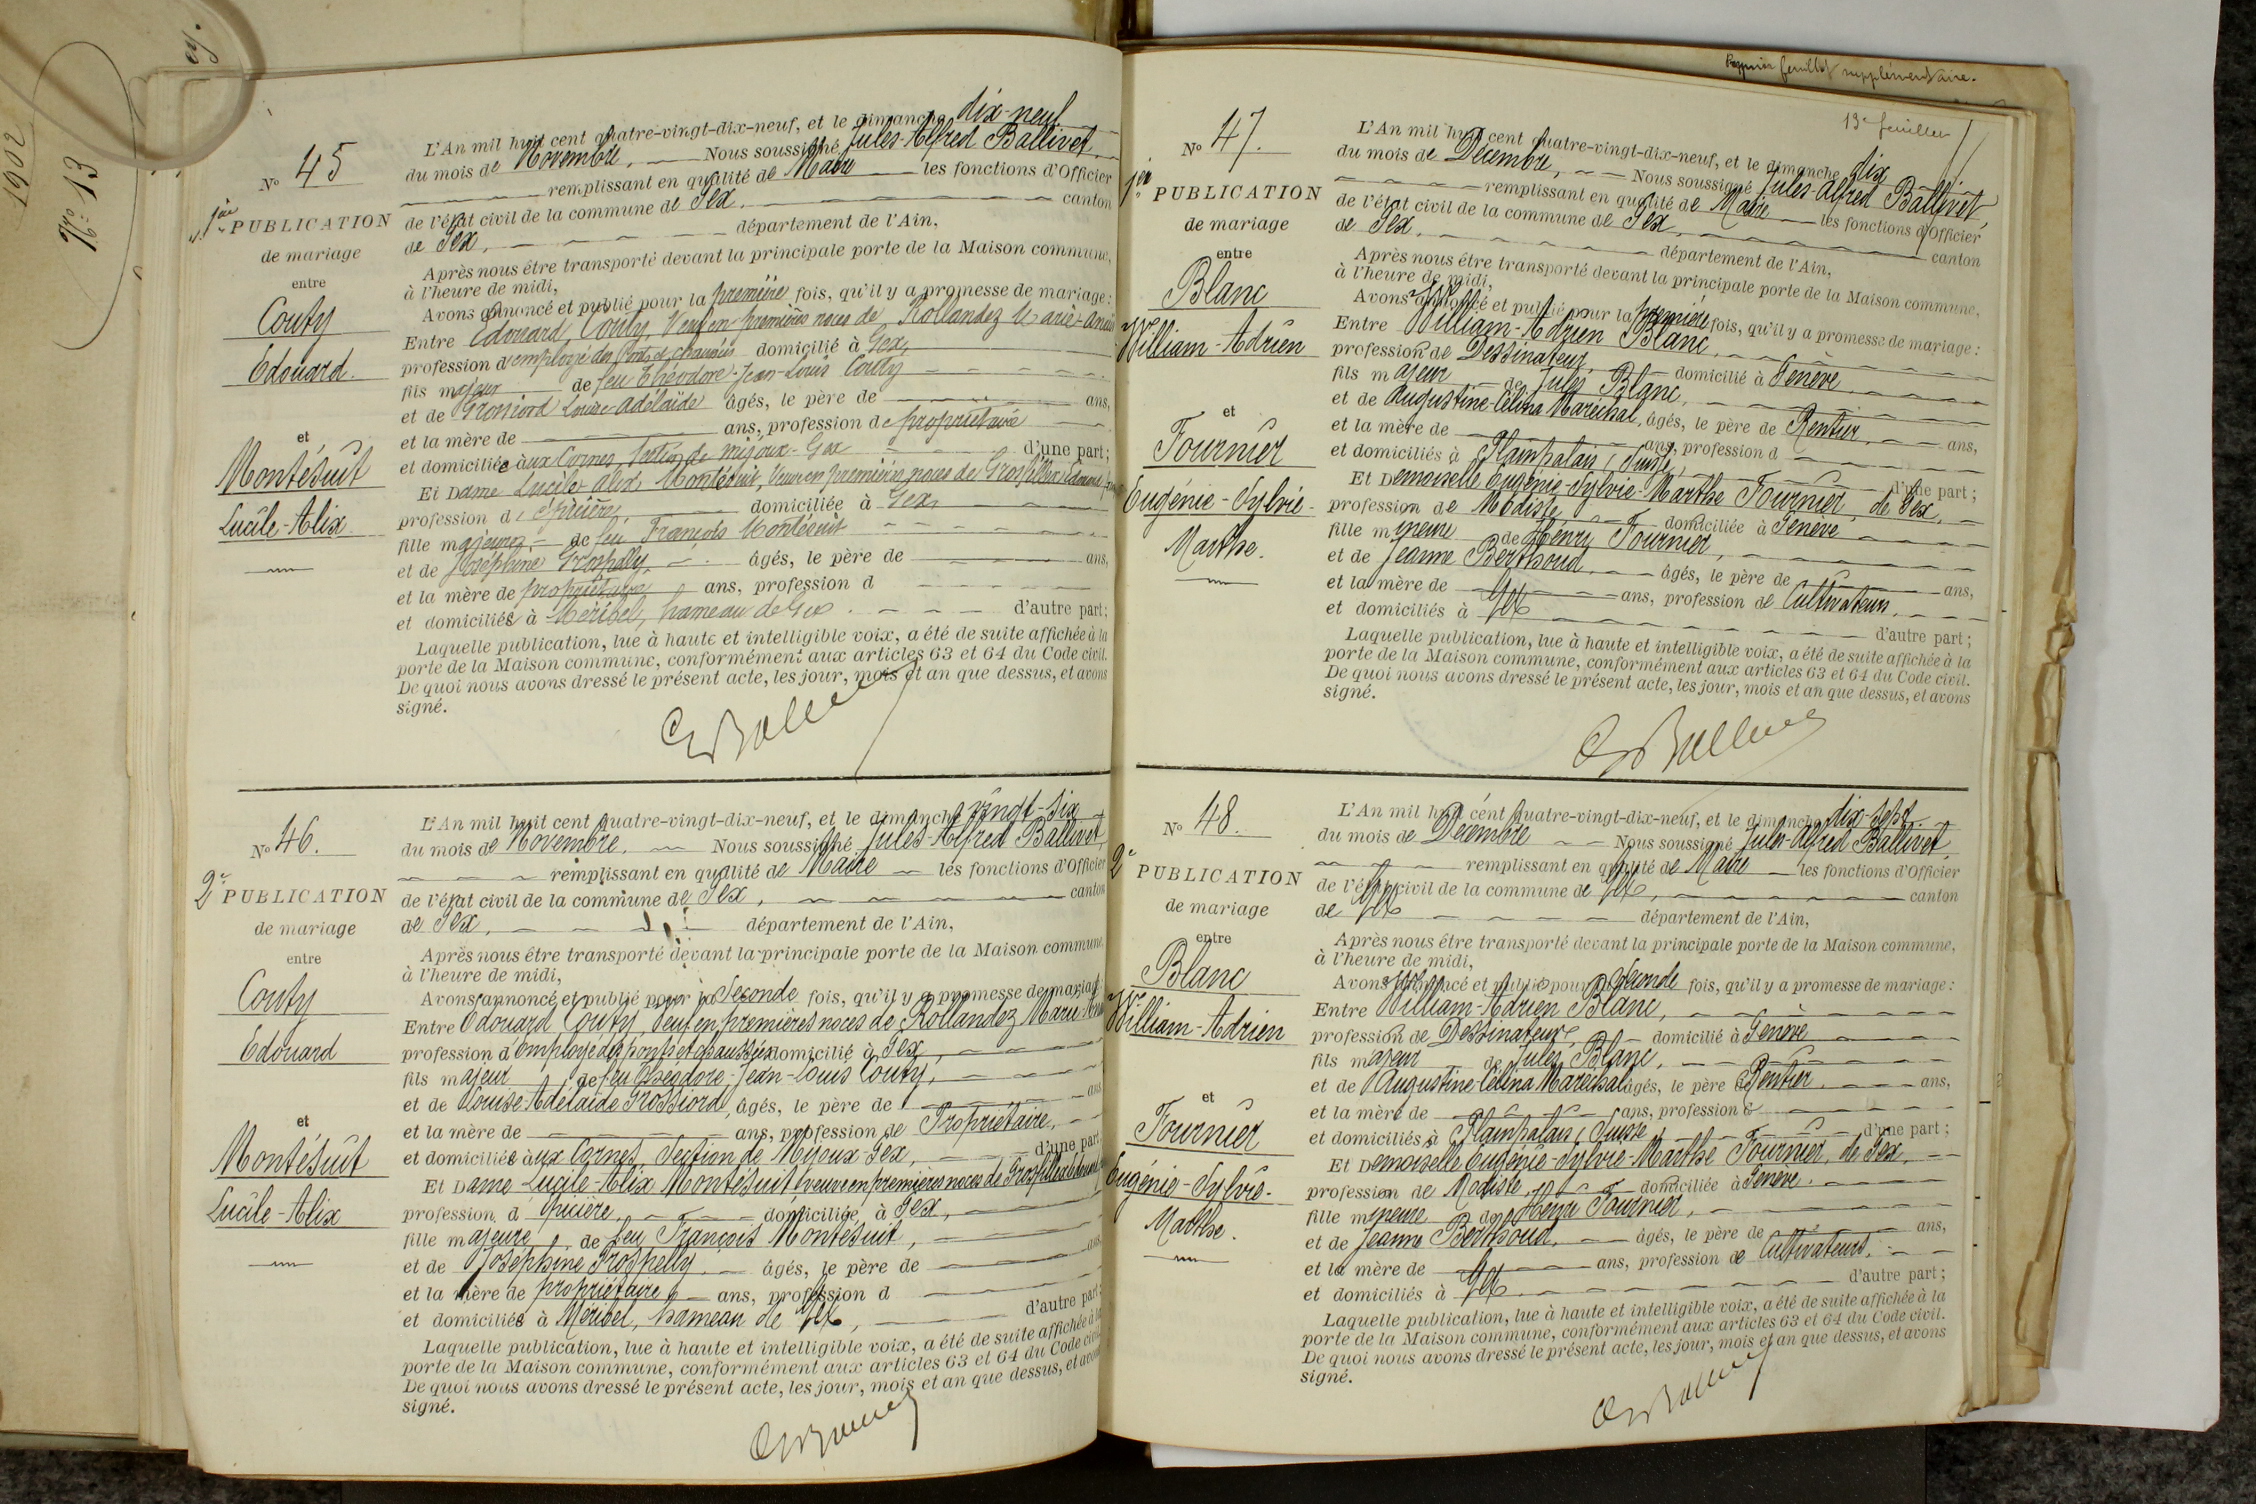 1902
Nro 13
Premier feuillet supplémentaire.
No 45
1ère PUBLICATION
de mariage
entre
Couty
Edouard.
et
Montésuit
Lucile-Alix
L'An mil huit cent quatre-vingt-dix-neuf, et le dimanche dix-neuf
du mois de Novembre, Nous soussigné Jules-Alfred Ballivet,
remplissant en qualité de Maire les fonctions d'Officier
de l'état civil de la commune de Gex. canton
de Gex, département de l'Ain,
Après nous être transporté devant la principale porte de la Maison commune,
à l'heure de midi,
Avons annoncé et publié pour la première fois, qu'il y a promesse de mariage:
Entre Edouard, Couty, Veuf en premières noces de Rollandez Marie-Anaïs
profession d'employé des Ponts et chaussées domicilié à Gex,
fils majeur de feu Théodore-Jean-Louis Couty
et de Grossiord Louise-Adélaïde âgés, le père de ans,
et la mère de ans, profession de propriétaire
et domiciliée aux Cornes, Section de mijoux-Gex d'une part;
Et Dame Lucile Alix Montésuit, Veuve en premières noces de Grospiller Edouard
profession d'épicière, domiciliée à Gex
fille majeure de feu François Montésuit
et de Joséphine Grospelly, âgés, le père de ans,
et la mère de propriétaire ans, profession d
et domiciliée à Méribel, hameau de Gex. d'autre part;
Laquelle publication, lue à haute et intelligible voix, a été de suite affichée à la
porte de la Maison commune, conformément aux articles 63 et 64 du Code civil.
De quoi nous avons dressé le présent acte, les jour, mois et an que dessus, et avons
signé.
No 46.
2e PUBLICATION
de mariage
entre
Couty
Edouard
et
Montésuit
Lucile-Alix
L'An mil huit cent quatre-vingt-dix-neuf, et le dimanche vingt-six
du mois de Novembre. Nous soussigné Jules-Alfred Ballivet,
remplissant en qualité de Maire les fonctions d'Officier
de l'état civil de la commune de Gex, canton
de Gex, département de l'Ain,
Après nous être transporté devant la principale porte de la Maison commune
à l'heure de midi,
Avons annoncé et publié pour la Seconde fois, qu'il y a promesse de mariage:
Entre Edouard Couty, Veuf en premières noces de Rollandez Marie
profession d'employé des ponts et chaussées domicilié à Gex,
fils majeur de feu Théodore-Jean-Louis Couty,
et de Louise-Adélaïde Grossiord, âgés, le père de ans
et la mère de ans, profession de Propriétaire,
et domiciliée aux Cornes, Section de Mijoux-Gex, d'une part
Et Dame Lucile-Alix Montésuit, veuve en premières noces de Grospiller Edouard
profession d'épicière, domiciliée à Gex,
fille majeure de feu François Montésuit,
et de Joséphine Grospelly âgés, le père de ans
et la mère de propriétaire ans, profession d
et domiciliée à Méribel, hameau de Gex, d'autre part;
Laquelle publication, lue à haute et intelligible voix, a été de suite affichée à la
porte de la Maison commune, conformément aux articles 63 et 64 du Code civil
De quoi nous avons dressé le présent acte, les jour, mois et an que dessus, et avons
signé.
13e feuillet
No 47.
1ère PUBLICATION
de mariage
entre
Blanc
William-Adrien
et
Fournier
Eugénie-Sylvie-
Marthe.
L'An mil huit cent quatre-vingt-dix-neuf, et le dimanche dix
du mois de Décembre, Nous soussigné Jules-Alfred Ballivet,
remplissant en qualité de Maire les fonctions d'Officier
de l'état civil de la commune de Gex, canton
de Gex, département de l'Ain,
Après nous être transporté devant la principale porte de la Maison commune,
à l'heure de midi,
Avons annoncé et publié pour la première fois, qu'il y a promesse de mariage:
Entre William-Adrien Blanc,
profession de Dessinateur, domicilié à Genève
fils majeur de Jules Blanc,
et de Augustine-Célina Maréchal, âgés, le père de Rentier, ans,
et la mère de ans, profession d
et domiciliés à Plainpalais (Suisse), d'une part;
Et Demoiselle Eugénie-Sylvie-Marthe Fournier, de Gex,
profession de Modiste, domiciliée à Genève
fille mineure de Henri Fournier,
et de Jeanne Berthoud, âgés, le père de ans,
et la mère de ans, profession de Cultivateurs,
et domiciliés à Gex d'autre part;
Laquelle publication, lue à haute et intelligible voix, a été de suite affichée à la
porte de la Maison commune, conformément aux articles 63 et 64 du Code civil.
De quoi nous avons dressé le présent acte, les jour, mois et an que dessus, et avons
signé.
No 48.
2e PUBLICATION
de mariage
entre
Blanc
William-Adrien
et
Fournier
Eugénie-Sylvie-
Marthe.
L'An mil huit cent quatre-vingt-dix-neuf, et le dimanche dix-sept
du mois de Décembre Nous soussigné Jules-Alfred Ballivet,
remplissant en qualité de Maire les fonctions d'Officier
de l'état civil de la commune de Gex, canton
de Gex département de l'Ain,
Après nous être transporté devant la principale porte de la Maison commune,
à l'heure de midi,
Avons annoncé et publié pour la Seconde fois, qu'il y a promesse de mariage:
Entre William-Adrien Blanc,
profession de Dessinateur, domicilié à Genève
fils majeur de Jules Blanc,
et de Augustine-Célina Maréchal âgés, le père de Rentier, ans,
et la mère de ans, profession d
et domiciliés à Plainpalais (Suisse) d'une part;
Et Demoiselle Eugénie-Sylvie-Marthe Fournier, de Gex,
profession de Modiste, domiciliée à Genève.
fille mineure de Henri Fournier,
et de Jeanne Berthoud, âgés, le père de ans,
et la mère de ans, profession de Cultivateurs.
et domiciliés à Gex d'autre part;
Laquelle publication, lue à haute et intelligible voix, a été de suite affichée à la
porte de la Maison commune, conformément aux articles 63 et 64 du Code civil.
De quoi nous avons dressé le présent acte, les jour, mois et an que dessus, et avons
signé.